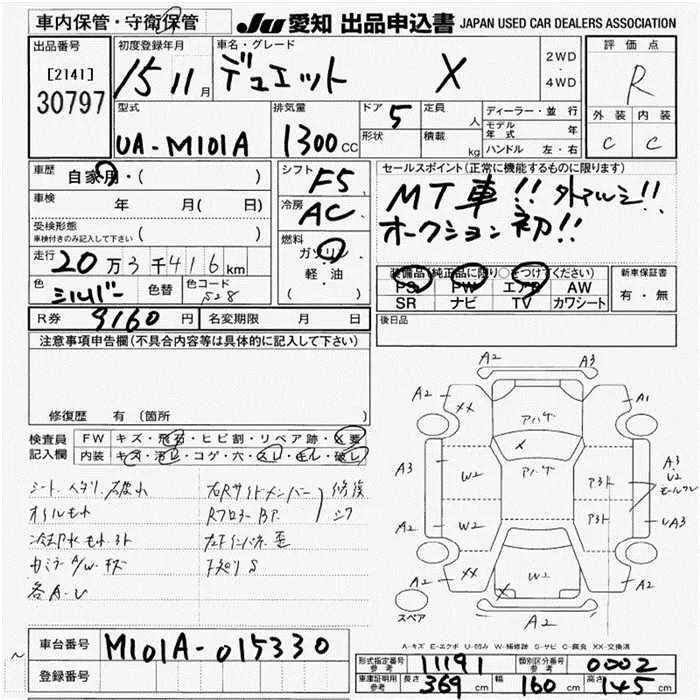 車内保管・守衛保管
JU 愛知 出品申込書 JAPAN USED CAR DEALERS ASSOCIATION
出品番号
[2141]
30797
初度登録年月
15 11月
車名・グレード
デュエット X
2WD
・
4WD
評価点
R
外装 内装
C C
型式
UA-M101A
排気量
1300cc
ドア
5
形状
定員
人
積載
kg
ディーラー・並行
モデル年式 年
ハンドル 左・右
車歴
自家用・( )
車検
年 月( 日)
受検形態
車検付きのみ記入して下さい ( )
走行
20万3千416km
色
シルバー
色替
色コード
S28
シフト
F5
冷房
AC
燃料
ガソリン
軽油
( )
セールスポイント(正常に機能するものに限ります)
MT車!! 外アルミ!!
オークション初!!
装備品(純正品に限り○をつけてください)
PS PW エアB AW
SR ナビ TV カワシート
新車保証書
有・無
後日品
R券 9160円
名変期限 月 日
注意事項申告欄(不具合内容等は具体的に記入して下さい)
修復歴 有(箇所 )
検査員
記入欄
FW キズ・飛石・ヒビ割・リペア跡・X要
内装 キズ・汚レ・コゲ・穴・スレ・キレ・破レ
シート、ヘタリ、破れ
オイルもれ
冷却水もれ
各A・U
右Rサイドメンバー
Rフロアー
修復
A2 A3
A2 XX アハゲ A1
X
A3 W2 アハゲ アヨト A3
U2
モールワレ
A2 W2 アヨト UA3
A2 XX X W2 A2
A2
スペア
A-キズ E-エクボ U-凹み W-補修跡 S-サビ C-腐食 XX-交換済
車台番号
M101A-015330
登録番号
形式指定番号
参考
11191
類別区分番号
参考
0002
車庫証明用
参考
長さ 369cm 幅 160cm 高さ 145cm